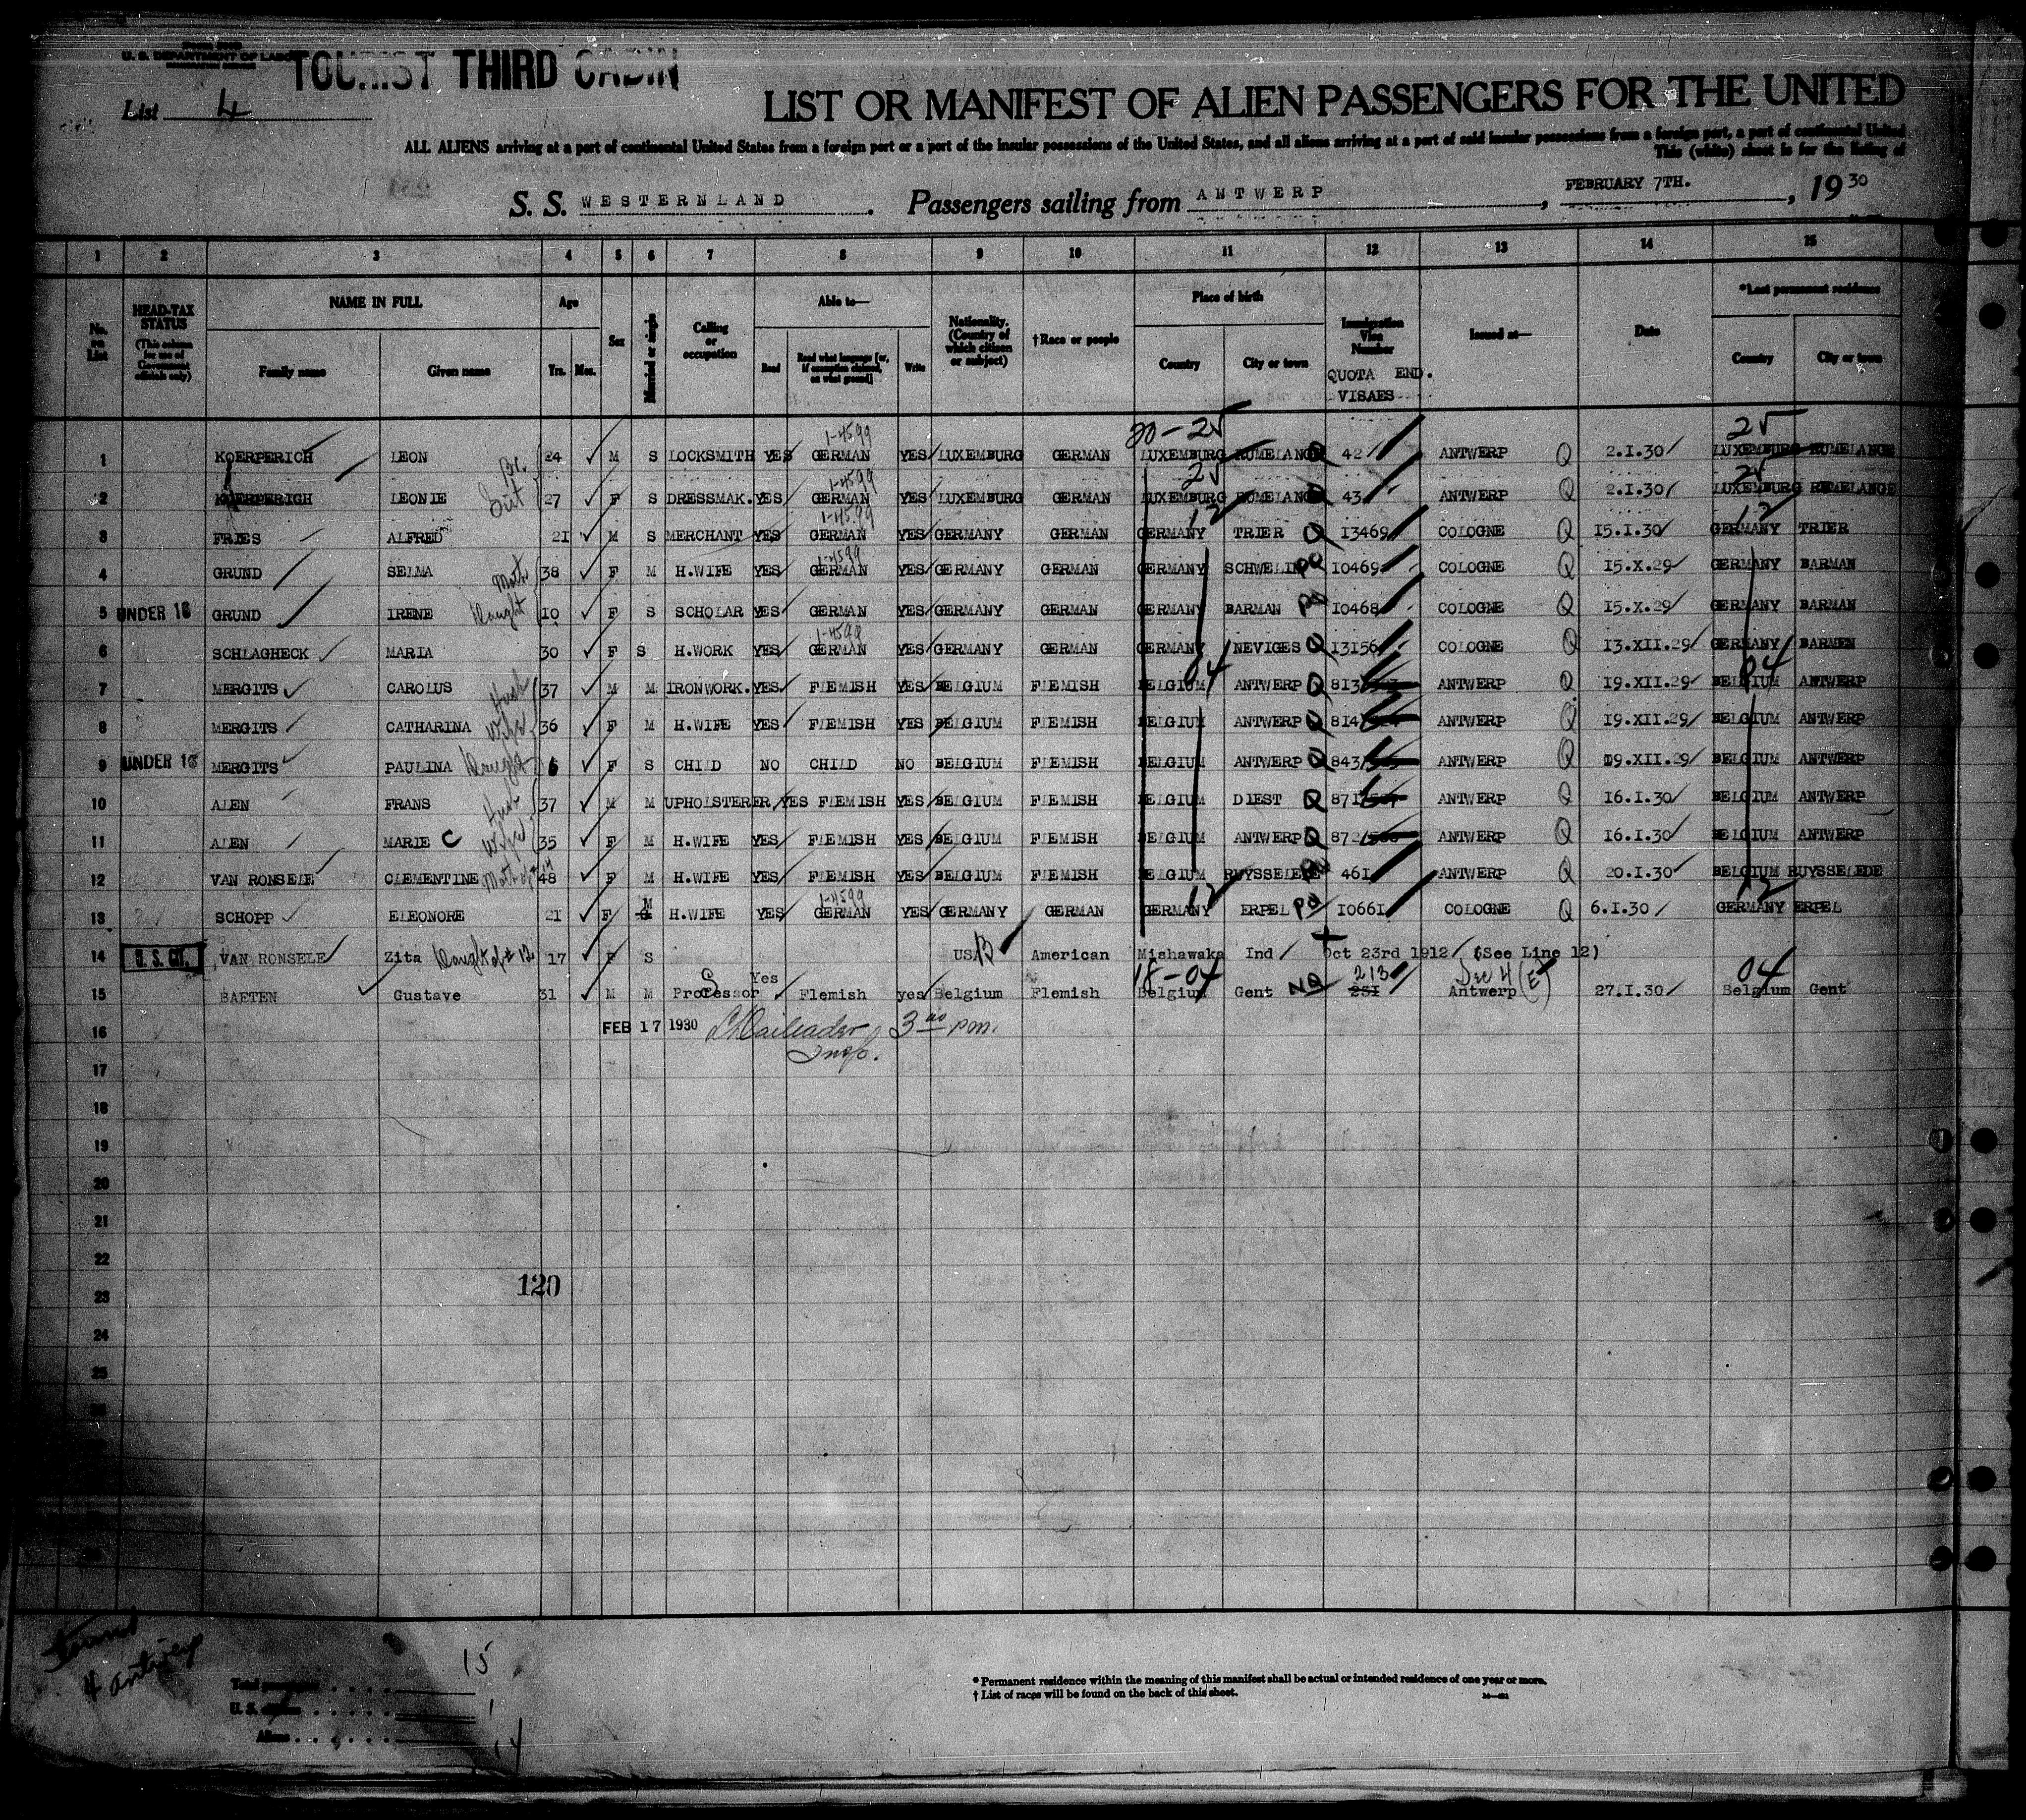 U. S. DEPARTMENT OF LABOR
TOURIST THIRD CABIN
List 4
LIST OR MANIFEST OF ALIEN PASSENGERS FOR THE UNITED
ALL ALIENS arriving at a port of continental United States from a foreign port or a port of the insular possessions of the United States, and all aliens arriving at a port of said insular possessions from a foreign port, a port of continental United
This (white) sheet is for the listing of
S. S. WESTERNLAND. Passengers sailing from ANTWERP, FEBRUARY 7TH., 1930
1 2 3 4 5 6 7 8 9 10 11 12 13 14 15
No. on List HEAD-TAX STATUS (This column for use of Government officials only) NAME IN FULL Family name Given name Age Yrs. Mos. Sex Married or single Calling or occupation Able to— Read Read what language [or, if exemption claimed, on what ground] Write Nationality. (Country of which citizen or subject) †Race or people Place of birth Country City or town Immigration Visa Number QUOTA END. VISAES Issued at— Date *Last permanent residence Country City or town
1-4599 20-25 25
1 KOERPERICH LEON Br. 24 M S LOCKSMITH YES GERMAN YES LUXEMBURG GERMAN LUXEMBURG RUMELANGE 42 ANTWERP Q 2.I.30 LUXEMBURG RUMELANGE
1-4599 25 25
2 KOERPERICH LEONIE Sist 27 F S DRESSMAK. YES GERMAN YES LUXEMBURG GERMAN LUXEMBURG RUMELANGE 43 ANTWERP Q 2.I.30 LUXEMBURG RUMELANGE
1-4599 12 12
3 FRIES ALFRED 21 M S MERCHANT YES GERMAN YES GERMANY GERMAN GERMANY TRIER Q 13469 COLOGNE Q 15.I.30 GERMANY TRIER
1-4599
4 GRUND SELMA Moth 38 F M H.WIFE YES GERMAN YES GERMANY GERMAN GERMANY SCHWELIN PQ 10469 COLOGNE Q 15.X.29 GERMANY BARMAN
5 UNDER 16 GRUND IRENE Daught 10 F S SCHOLAR YES GERMAN YES GERMANY GERMAN GERMANY BARMAN PQ 10468 COLOGNE Q 15.X.29 GERMANY BARMAN
1-4599
6 SCHLAGHECK MARIA 30 F S H.WORK YES GERMAN YES GERMANY GERMAN GERMANY NEVIGES Q 13156 COLOGNE Q 13.XII.29 GERMANY BARMEN
04 04
7 MERGITS CAROLUS Husb 37 M M IRONWORK. YES FLEMISH YES BELGIUM FLEMISH BELGIUM ANTWERP Q 813 ANTWERP Q 19.XII.29 BELGIUM ANTWERP
8 MERGITS CATHARINA Wife 36 F M H.WIFE YES FLEMISH YES BELGIUM FLEMISH BELGIUM ANTWERP Q 814 ANTWERP Q 19.XII.29 BELGIUM ANTWERP
9 UNDER 16 MERGITS PAULINA Daught 6 F S CHILD NO CHILD NO BELGIUM FLEMISH BELGIUM ANTWERP Q 843 ANTWERP Q 19.XII.29 BELGIUM ANTWERP
10 ALEN FRANS Husb 37 M M UPHOLSTERER YES FLEMISH YES BELGIUM FLEMISH BELGIUM DIEST Q 871 ANTWERP Q 16.I.30 BELGIUM ANTWERP
11 ALEN MARIE C Wife 35 F M H.WIFE YES FLEMISH YES BELGIUM FLEMISH BELGIUM ANTWERP Q 872 ANTWERP Q 16.I.30 BELGIUM ANTWERP
12 VAN RONSELE CLEMENTINE Moth of #14 48 F M H.WIFE YES FLEMISH YES BELGIUM FLEMISH BELGIUM RUYSSELEDE 461 ANTWERP Q 20.I.30 BELGIUM RUYSSELEDE
M 1-4599 12 12
13 SCHOPP ELEONORE 21 F S H.WIFE YES GERMAN YES GERMANY GERMAN GERMANY ERPEL PQ 10661 COLOGNE Q 6.I.30 GERMANY ERPEL
14 U. S. CIT. VAN RONSELE Zita Daught of # 12 17 F S USA American Mishawaka Ind Oct 23rd 1912 (See Line 12)
Yes 18-04 213 Sec 4 (E) 04
15 BAETEN Gustave 31 M M Professor Flemish yes Belgium Flemish Belgium Gent NQ 231 Antwerp 27.I.30 Belgium Gent
16 FEB 17 1930 3 00 pm.
Insp.
17
18
19
20
21
22
120
23
24
25
26
Total passengers 15
U. S. citizens 1
Aliens 14
* Permanent residence within the meaning of this manifest shall be actual or intended residence of one year or more.
† List of races will be found on the back of this sheet.